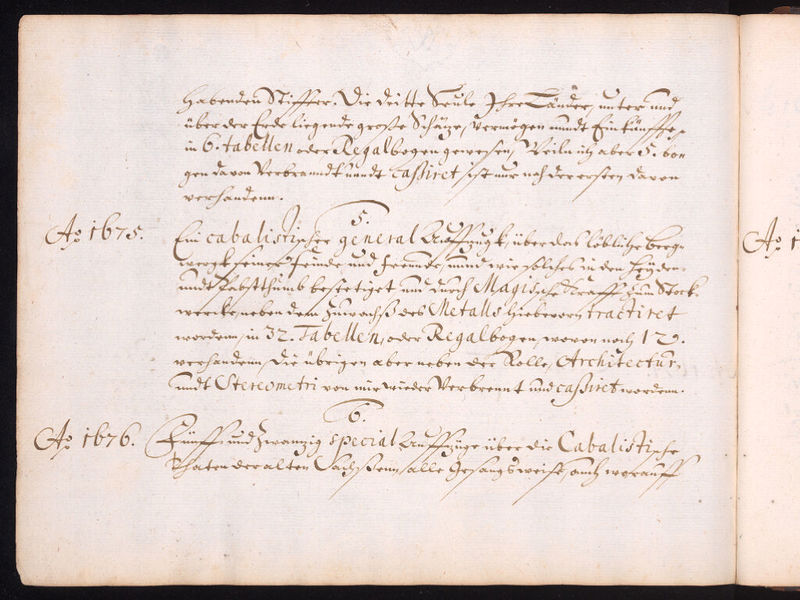 habenden Stiffter. Die dritte Seule Ihre Länder, unter und
über der Erde liegende große Schäze, Vermögen unndt Einkünffte,
in 6. tabellen oder Regalbogen gewesen, Weiln itz aber 5. bo-
gen davon Verbranndt unndt Caßiret, ist nur noch der ersten davon
verhandenn.
5.
Ao 1675. Ein cabalistischer general Auffzugk, über das löbliche Berg-
werck seiner Feinde und Freunde, unnd wie solches in den Heyden-
undt Pabstthumb bestetiget und durch Magische Krafft zum Stock-
wercke, neben dem Zuwachß des Metalls hiebevorn tractiret
worden, in 32. Tabellen, oder Regalbogen, wovon noch 12.
verhandenn, die übrigen aber neben der Rolle, Architectur,
undt Stereometri von mir wieder Verbrennt und caßiret worden.
6.
Ao 1676. Fünff und Zwanzig special Auffzüge über die Cabalistische
Thaten der alten Sachßenn, alle Gesangsweise, auch worauff
Ao 1